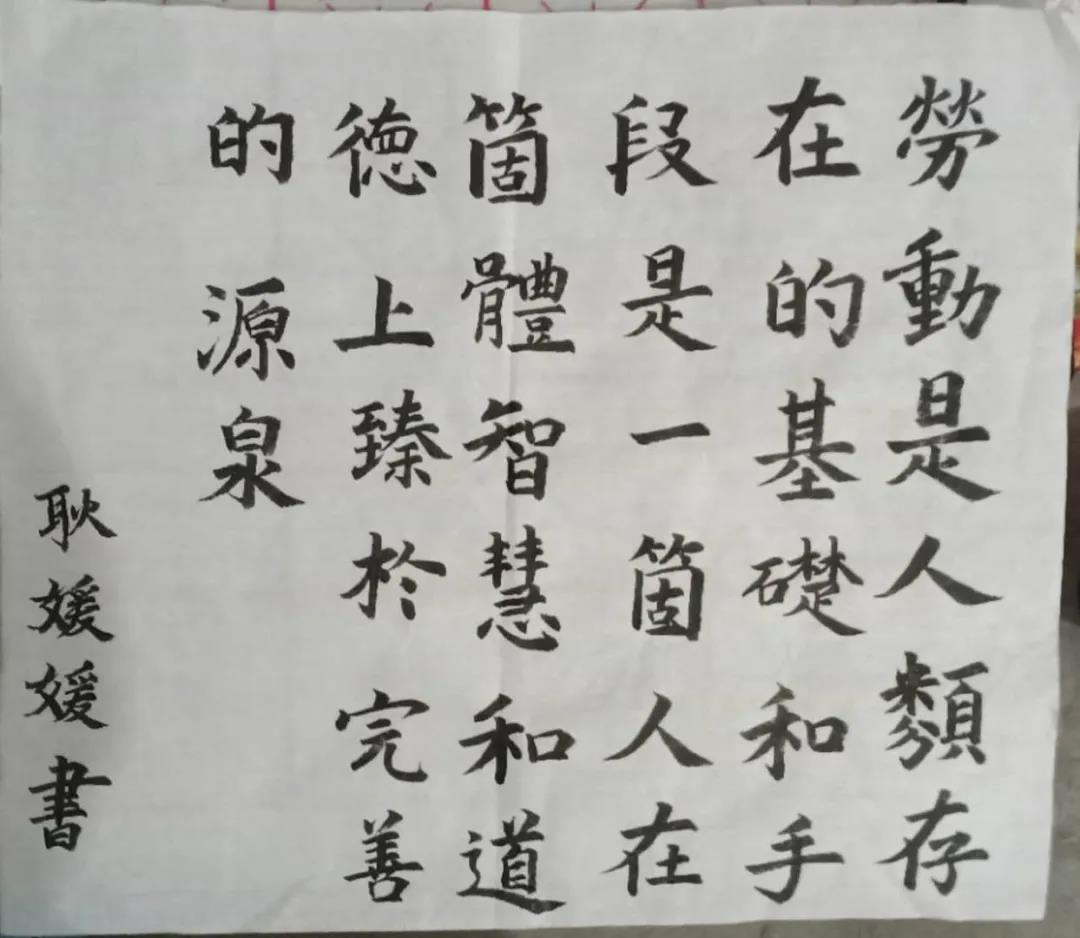 勞動是人類存
在的基礎和手
段是一箇人在
箇體智慧和道
德上臻於完善
的源泉
耿媛媛書